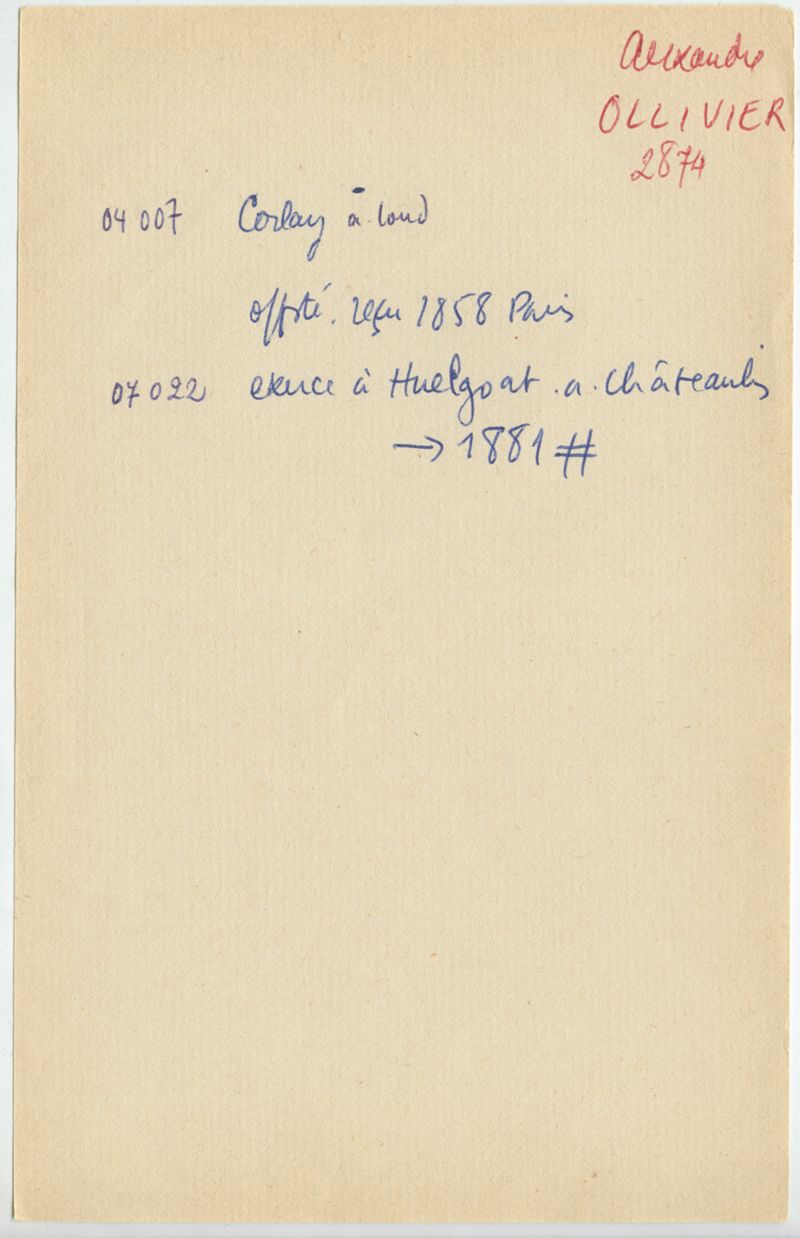 Alexandre
OLLIVIER
2874
04 007 Corlay a. Loud
offité. reçu 1858 Paris
07 022 exerce à Huelgoat . a . Châteaulin
→ 1881 #